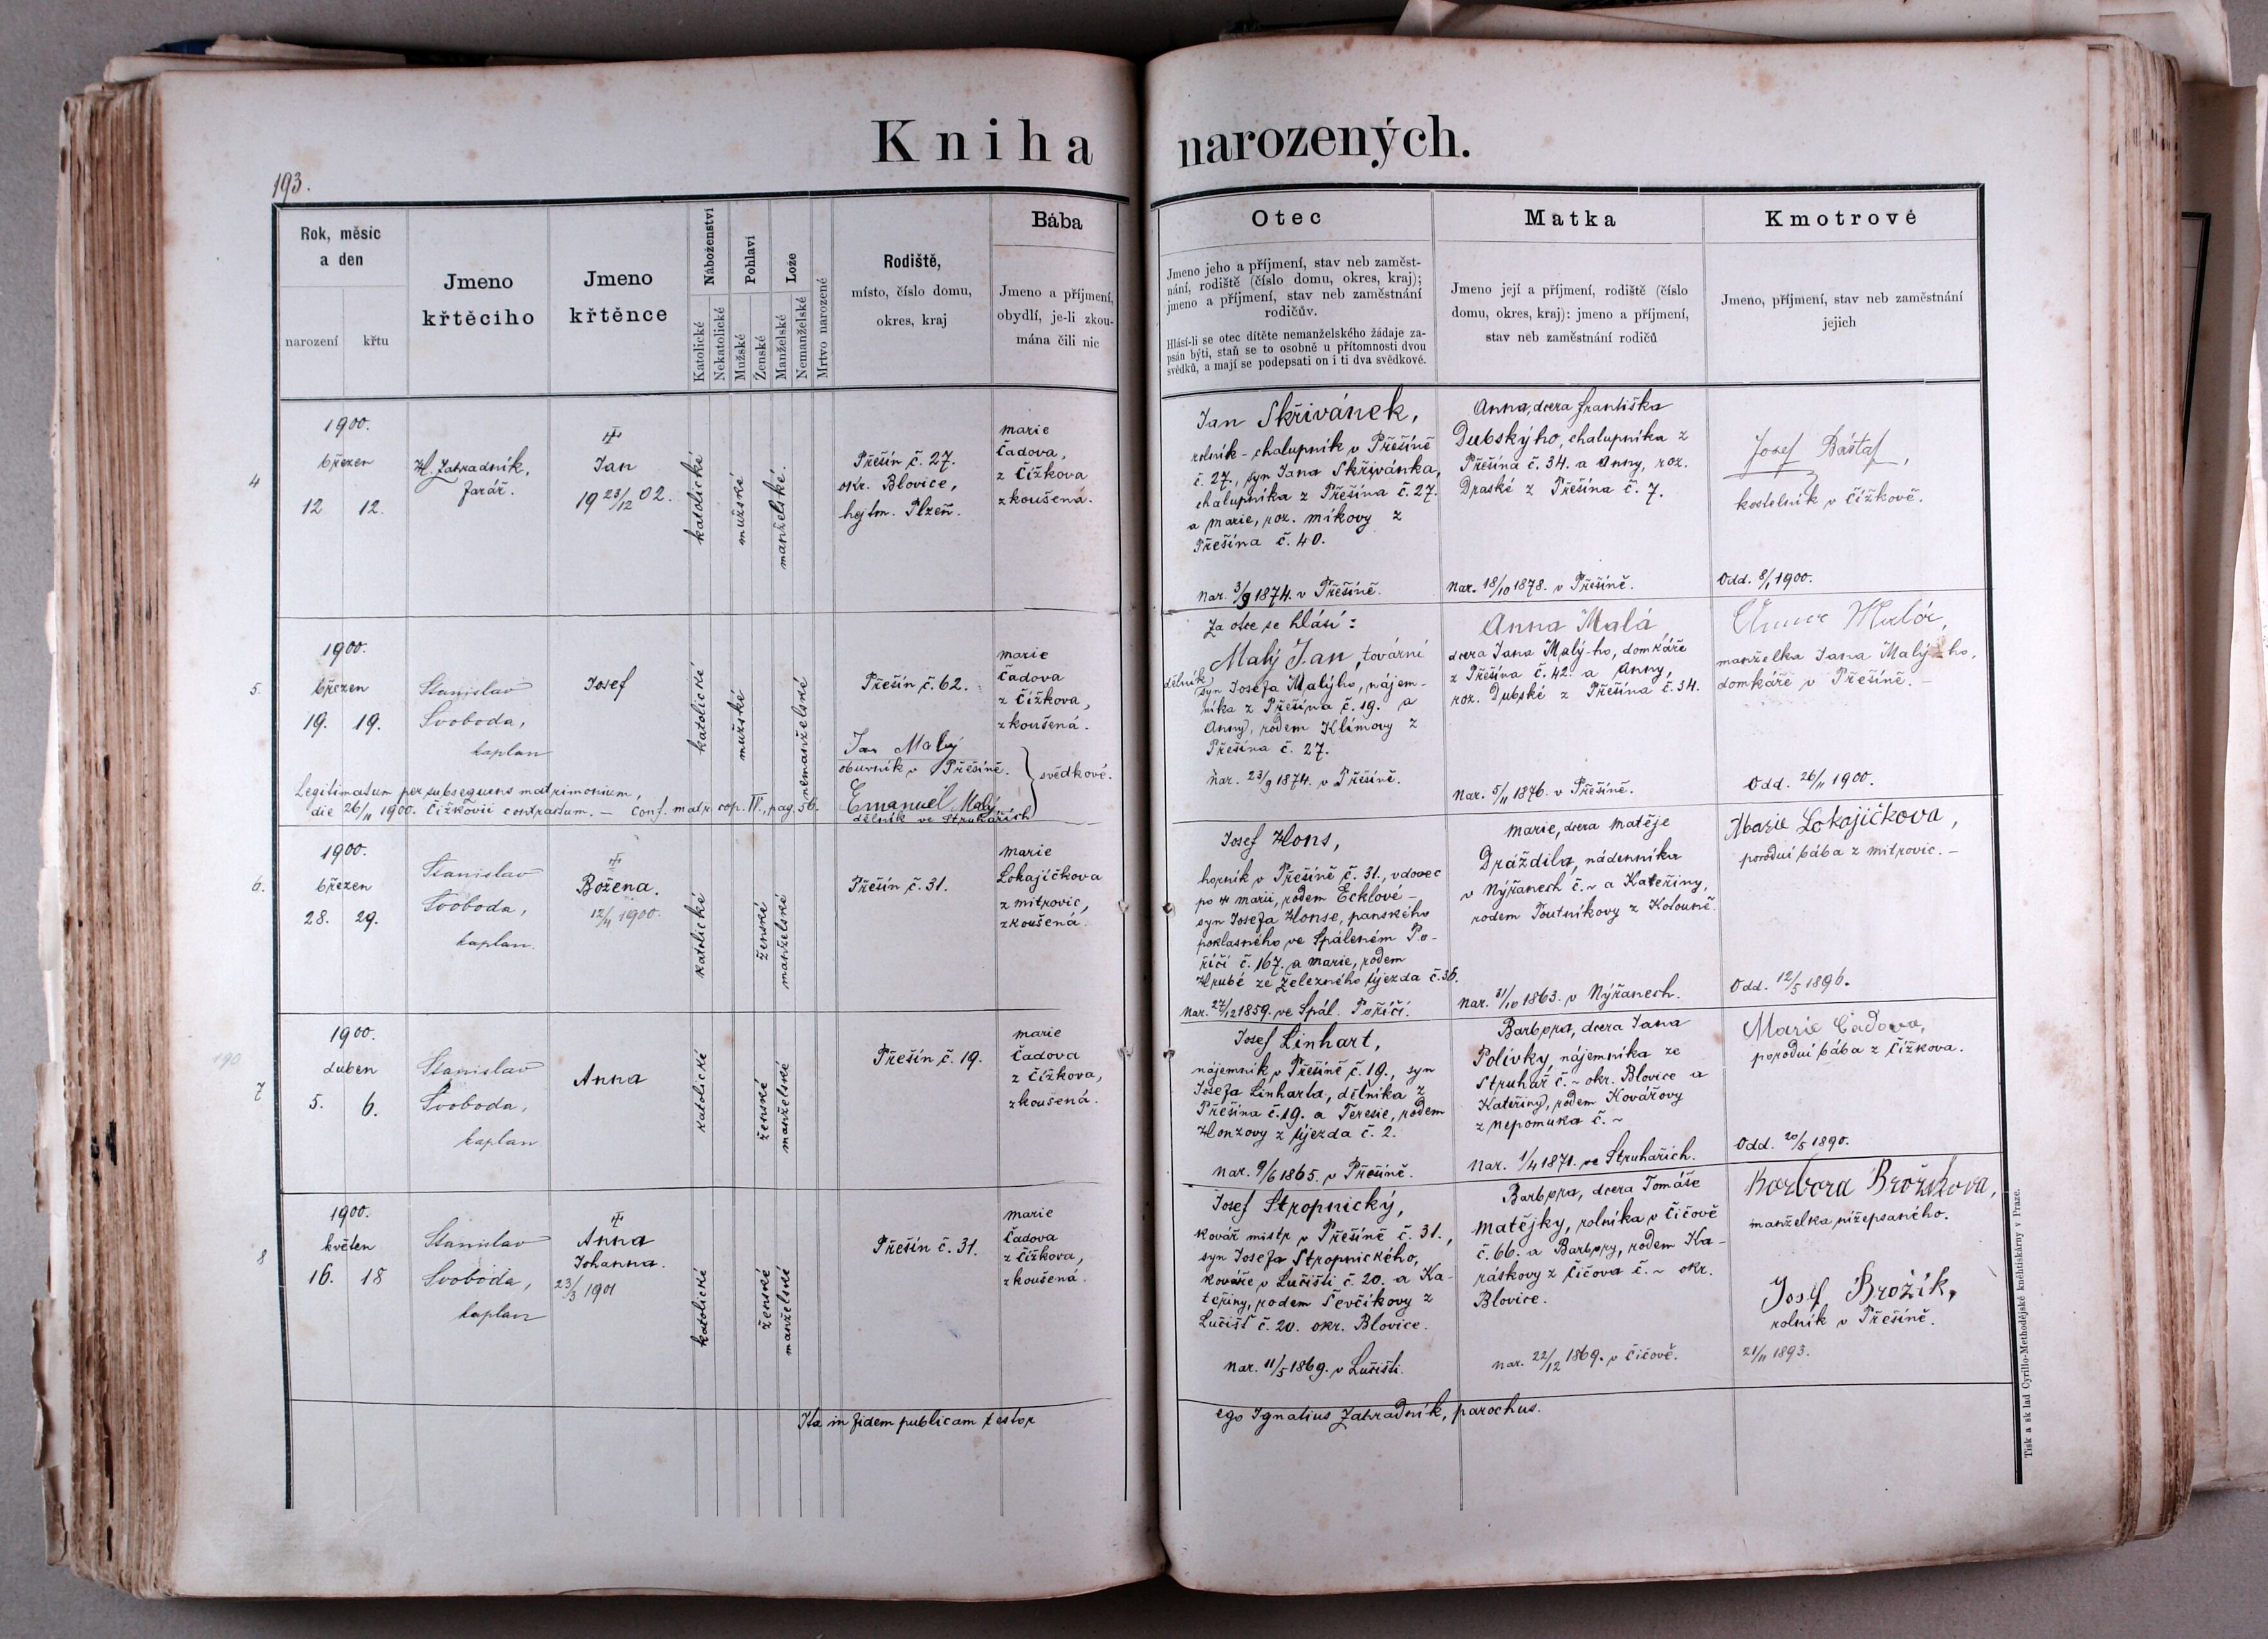 Kniha narozených.
193.
Rok, měsíc
a den
narození
křtu
Jmeno
křtěcího
Jmeno
křtěnce
Náboženství
Katolické
Nekatolické
Pohlaví
Mužské
Ženské
Lože
Manželské
Nemanželské
Mrtvo narozené
Rodiště,
místo, číslo domu,
okres, kraj
Bába
Jmeno a příjmení,
obydlí, je-li zkou-
mána čili nic
Otec
Jmeno jeho a příjmení, stav neb zaměst-
nání, rodiště (číslo domu, okres, kraj);
jmeno a příjmení, stav neb zaměstnání
rodičův.
Hlásí-li se otec dítěte nemanželského žádaje za-
psán býti, staň se to osobně u přítomnosti dvou
svědků, a mají se podepsati on i ti dva svědkové.
Matka
Jmeno její a příjmení, rodiště (číslo
domu, okres, kraj); jmeno a příjmení,
stav neb zaměstnání rodičů
Kmotrové
Jmeno, příjmení, stav neb zaměstnání
jejich
4
1900.
březen
12 12.
Zahradník,
farář.
Jan
19 23/12 02.
katolické
mužské
manželské.
Přešín č. 27.
okr. Blovice,
hejtm. Plzeň.
Marie
Čadova,
z Čížkova
zkoušená.
Jan Skřivánek,
rolník-chalupník v Přešíně
č. 27., syn Jana Skřivánka,
chalupníka z Přešína č. 27.
a Marie, roz. Míkovy z
Přešína č. 40.
Nar. 3/9 1874. v Přešíně.
Anna, dcera Františka
Dubského, chalupníka z
Přešína č. 34. a Anny, roz.
Draské z Přešína č. 7.
Nar. 18/10 1878. v Přešíně.
Josef Baštař,
kostelník v Čížkově.
Odd. 8/1 1900.
5.
1900.
březen
19. 19.
Stanislav
Svoboda,
kaplan
Josef
katolické
mužské
nemanželské
Přešín č. 62.
Marie
Čadova
z Čížkova,
zkoušená.
Jan Malý
obuvník v Přešíně.
Emanuel Malý
dělník ve Struhařích
svědkové.
Legitimatum per subsequens matrimonium,
die 26/11 1900. Čížkovii contractum. — Conf. matr. cop. IV., pag. 56.
Za otce se hlásí:
Malý Jan, tovární
dělník,
syn Josefa Malýho, nájem-
níka z Přešína č. 19. a
Anny, rodem Klímovy z
Přešína č. 27.
Nar. 23/9 1874. v Přešíně.
Anna Malá
dcera Jana Malý-ho, domkáře
z Přešína č. 42. a Anny,
roz. Dubské z Přešína č. 34.
Nar. 5/11 1876. v Přešíně.
Anna Malá,
manželka Jana Malý-ho,
domkáře v Přešíně. —
Odd. 26/11 1900.
6.
1900.
březen
28. 29.
Stanislav
Svoboda,
kaplan.
Božena.
12/4 1900.
katolické
ženské
manželské
Přešín č. 31.
Marie
Lokajíčkova
z Mitrovic,
zkoušená.
Josef Hons,
horník v Přešíně č. 31., vdovec
po † Marii, rodem Ecklové —
syn Josefa Honse, panského
poklasného ve Spáleném Po-
říčí č. 167. a Marie, rodem
Hrubé ze Železného Újezda č. 36.
Nar. 27/12 1859. ve Spál. Poříčí.
Marie, dcera Matěje
Dráždila, nádenníka
v Nýřanech č. ~ a Kateřiny,
rodem Poutníkovy z Kolouně.
Nar. 31/10 1863. v Nýřanech.
Marie Lokajíčkova,
porodní bába z Mitrovic. —
Odd. 12/5 1896.
190
7
1900.
duben
5. 6.
Stanislav
Svoboda,
kaplan
Anna
katolické
ženské
manželské
Přešín č. 19.
Marie
Čadova
z Čížkova,
zkoušená.
Josef Linhart,
nájemník v Přešíně č. 19., syn
Josefa Linharta, dělníka z
Přešína č. 19. a Teresie, rodem
Honzovy z Újezda č. 2.
Nar. 9/6 1865. v Přešíně.
Barbora, dcera Jana
Polívky, nájemníka ze
Struhař č. ~ okr. Blovice a
Kateřiny, rodem Kovářovy
z Nepomuka č. ~
Nar. 1/4 1871. ve Struhařích.
Marie Čadova,
porodní bába z Čížkova.
Odd. 20/5 1890.
8
1900.
květen
16. 18
Stanislav
Svoboda,
kaplan
Anna
Johanna.
23/3 1901
katolické
ženské
manželské
Přešín č. 31.
Marie
Čadova
z Čížkova,
zkoušená.
Josef Stropnický,
kovář mistr v Přešíně č. 31.,
syn Josefa Stropnického,
kováře v Lučišti č. 20. a Ka-
teřiny, rodem Ševčíkovy z
Lučišť č. 20. okr. Blovice.
Nar. 11/5 1869. v Lučišti.
Barbora, dcera Tomáše
Matějky, rolníka v Čičově
č. 66. a Barbory, rodem Ka-
ráskovy z Čičova č. ~ okr.
Blovice.
Nar. 22/12 1869. v Čičově.
Barbora Brožíkova,
manželka nížepsaného.
Josef Brožík,
rolník v Přešíně.
21/11 1893.
Ita in fidem publicam testor
ego Ignatius Zahradník, parochus.
Tisk a sklad Cyrillo-Methodějské knihtiskárny v Praze.